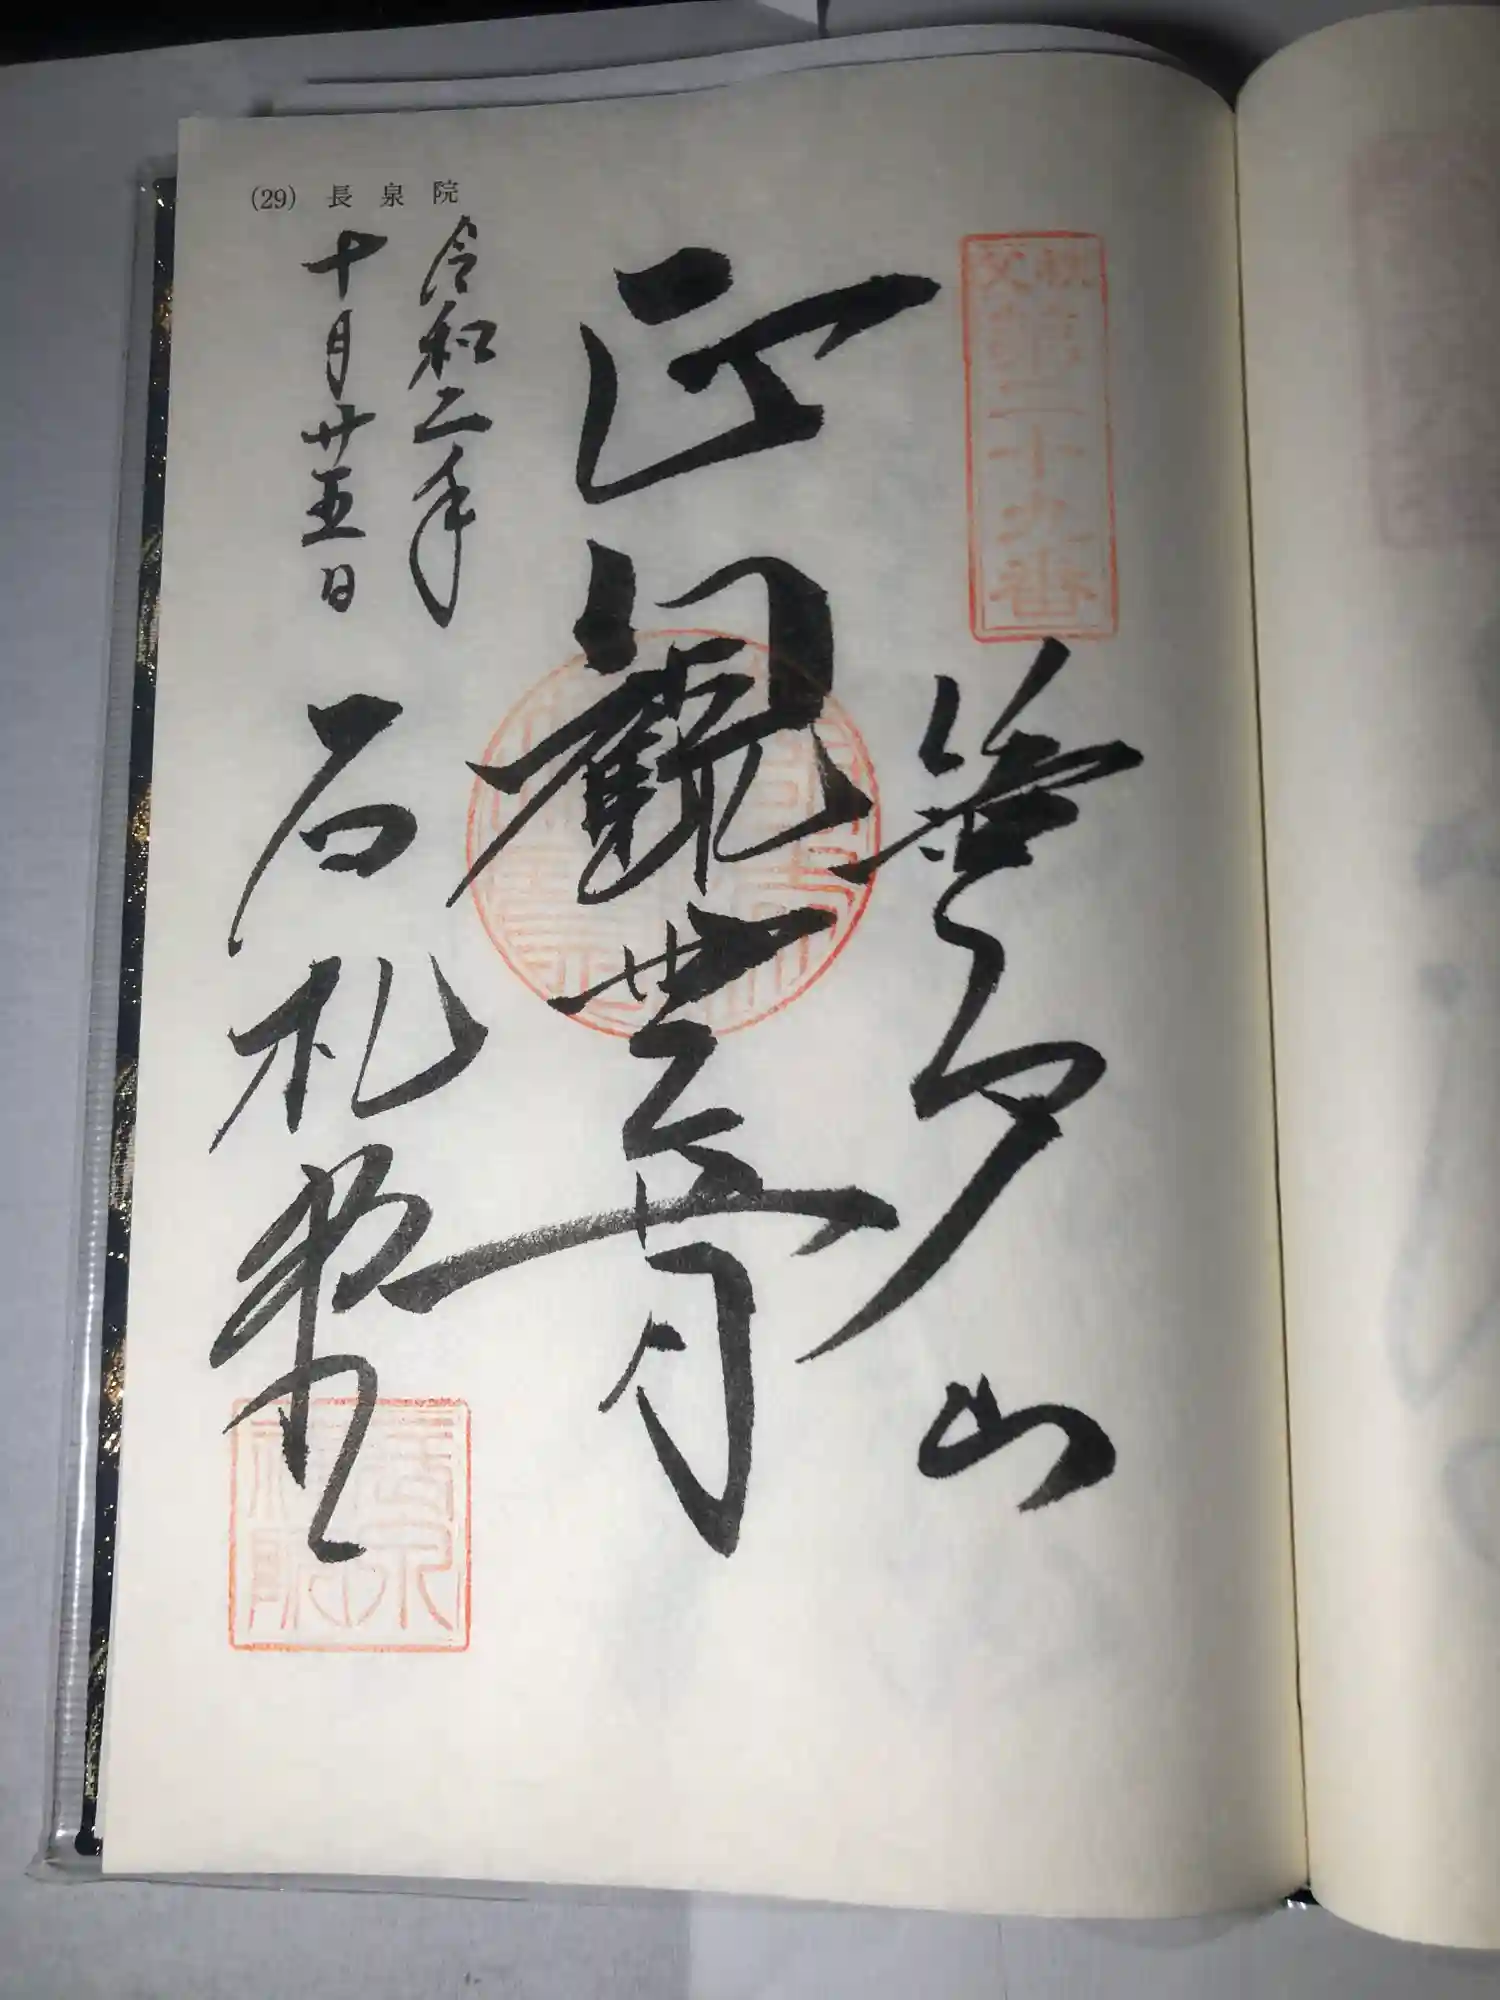 (29) 長泉院
秩父
第二十九番
笹戸山
正観世音
令和二年
十月廿五日
石札堂
長泉